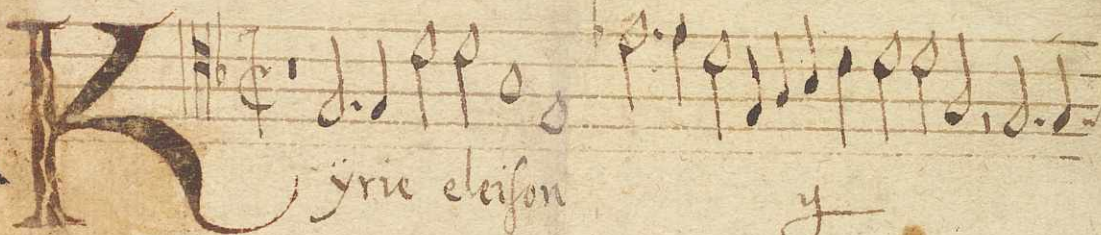 Kÿrie eleiſon ij